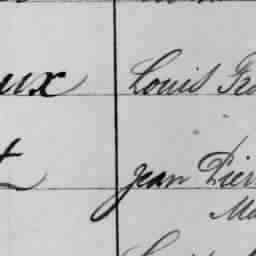 ux Louis Fra
t Jean Pier
Ma